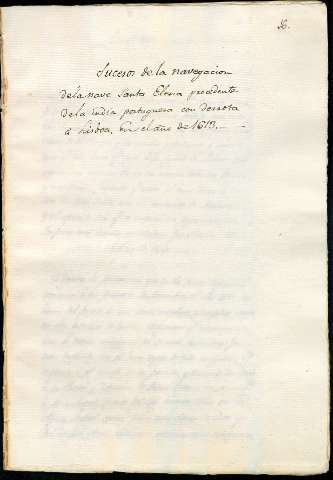 36.
Sucesos de la navegacion
de la nave Santa Elena procedente
de la india portuguesa con derrota
a Lisboa, en el año de 1613.